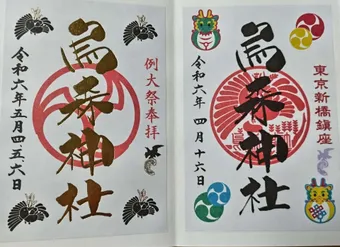 例大祭奉拝
烏森神社
令和六年五月四、五、六日
東京新橋鎮座
烏森神社
令和六年 四月十六日